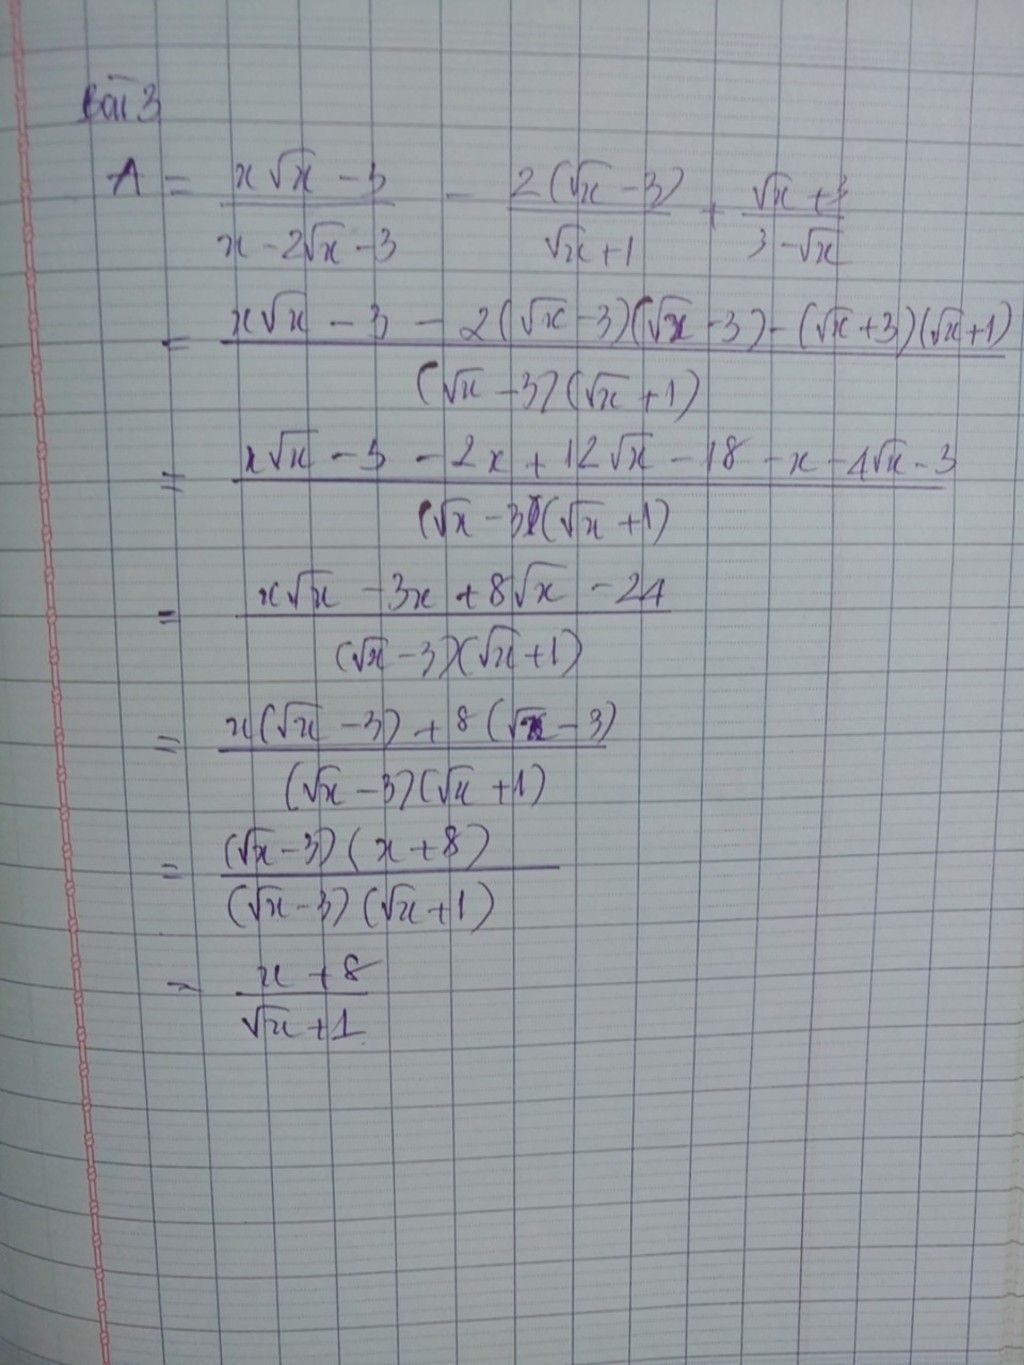 Bài 3
A = (x√x - 3)/(x - 2√x - 3) - (2(√x - 3))/(√x + 1) + (√x + 3)/(3 - √x)
= (x√x - 3 - 2(√x - 3)(√x - 3) - (√x + 3)(√x + 1))/((√x - 3)(√x + 1))
= (x√x - 3 - 2x + 12√x - 18 - x - 4√x - 3)/((√x - 3)(√x + 1))
= (x√x - 3x + 8√x - 24)/((√x - 3)(√x + 1))
= (x(√x - 3) + 8(√x - 3))/((√x - 3)(√x + 1))
= ((√x - 3)(x + 8))/((√x - 3)(√x + 1))
= (x + 8)/(√x + 1)